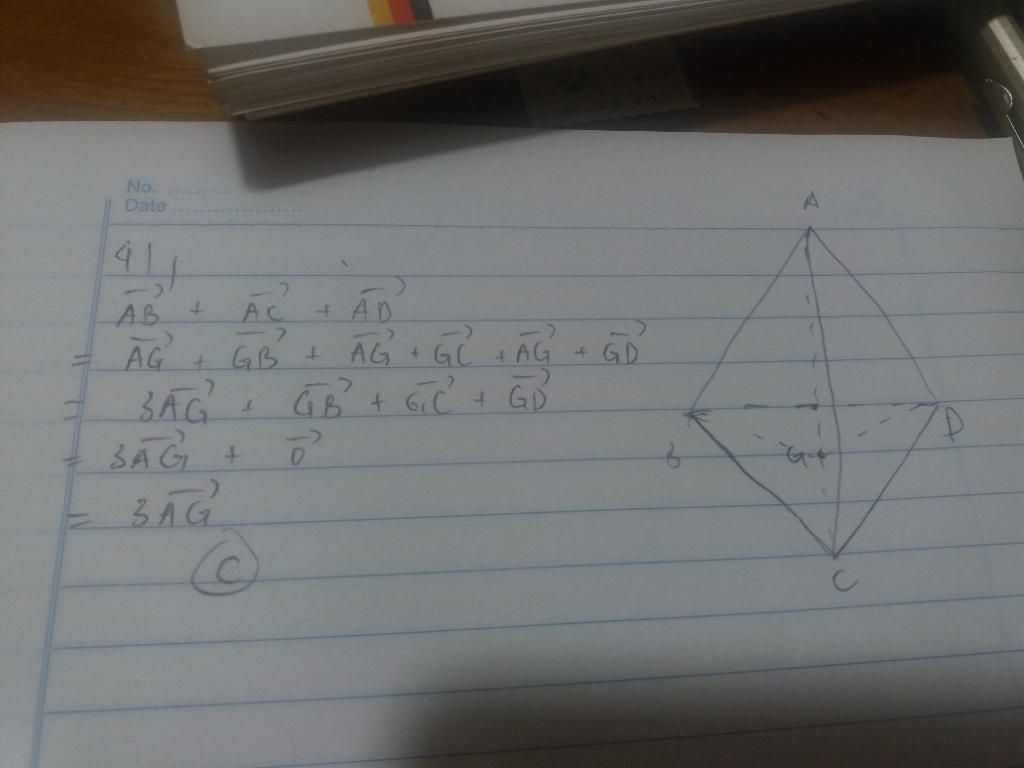 No. .........
Date ...................
41,
AB→ + AC→ + AD→
= AG→ + GB→ + AG→ + GC→ + AG→ + GD→
= 3AG→ + GB→ + GC→ + GD→
= 3AG→ + 0→
= 3AG→
C
A
B
G
D
C